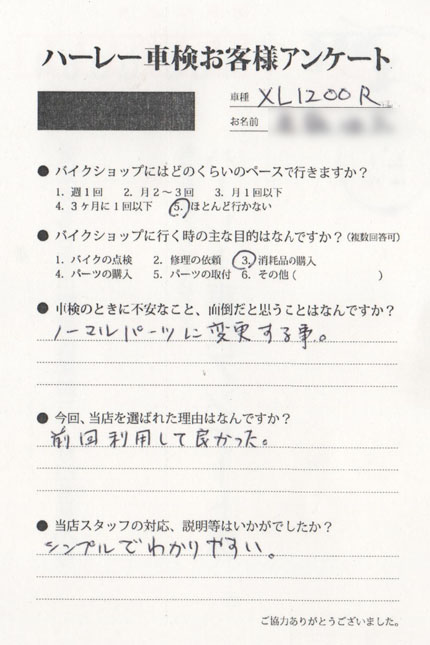 ハーレー車検お客様アンケート
車種 XL1200R
お名前
● バイクショップにはどのくらいのペースで行きますか？
1. 週1回 2. 月2～3回 3. 月1回以下
4. 3ヶ月に1回以下 5. ほとんど行かない
● バイクショップに行く時の主な目的はなんですか？(複数回答可)
1. バイクの点検 2. 修理の依頼 3. 消耗品の購入
4. パーツの購入 5. パーツの取付 6. その他 ( )
● 車検のときに不安なこと、面倒だと思うことはなんですか？
ノーマルパーツに変更する事。
● 今回、当店を選ばれた理由はなんですか？
前回利用して良かった。
● 当店スタッフの対応、説明等はいかがでしたか？
シンプルでわかりやすい。
ご協力ありがとうございました。